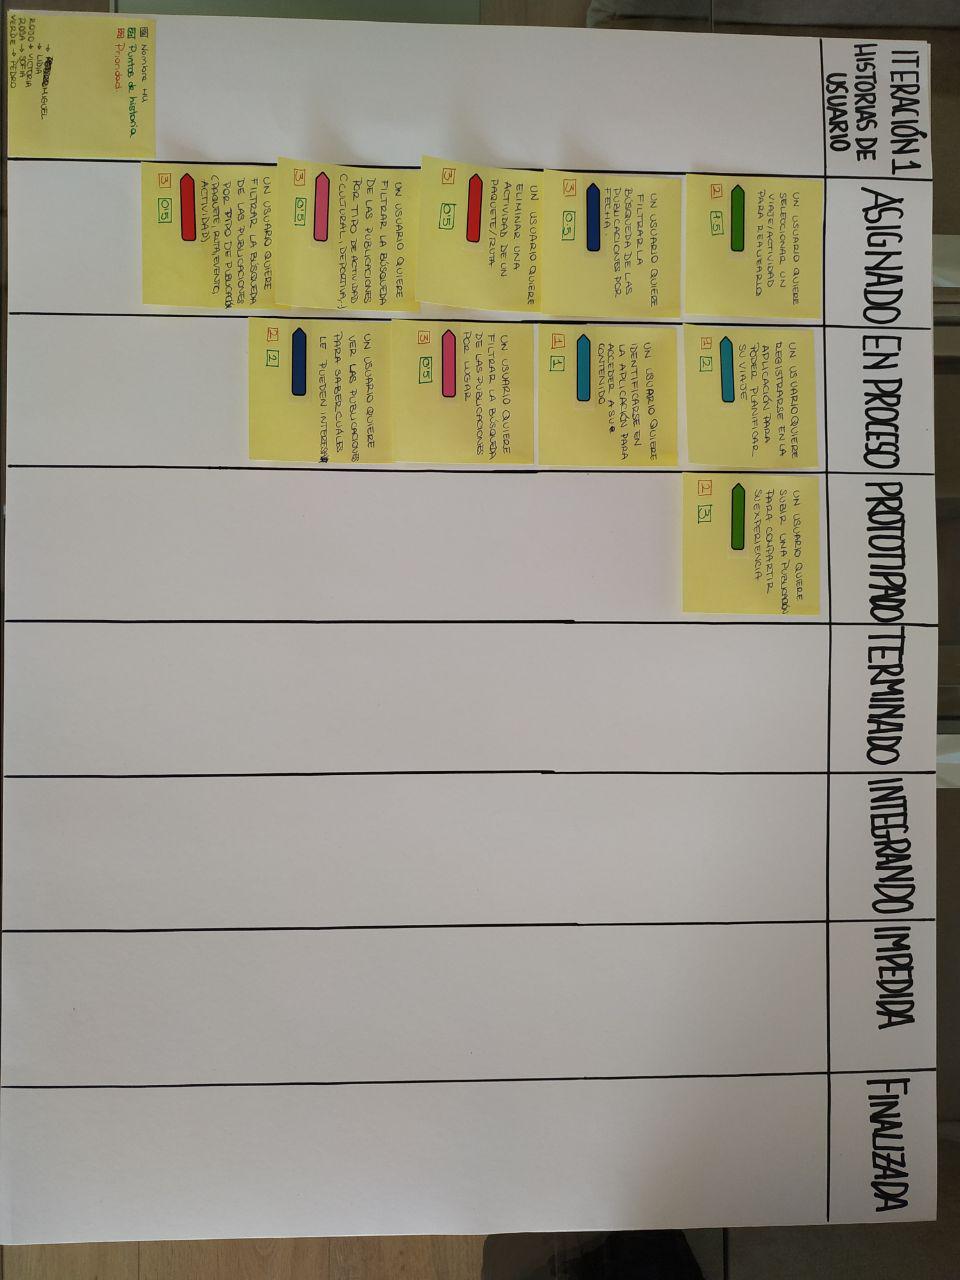 ITERACIÓN 1
HISTORIAS DE
USUARIO
ASIGNADO
EN PROCESO
PROTOTIPADO
TERMINADO
INTEGRANDO
IMPEDIDA
FINALIZADA
UN USUARIO QUIERE
SELECCIONAR UN
VIAJE/ACTIVIDAD
PARA REALIZARLO
2 1.5
UN USUARIO QUIERE
FILTRAR LA
BÚSQUEDA DE LAS
PUBLICACIONES POR
FECHA.
3 0.5
UN USUARIO QUIERE
ELIMINAR UNA
ACTIVIDAD DE UN
PAQUETE/RUTA
3 0'5
UN USUARIO QUIERE
FILTRAR LA BÚSQUEDA
DE LAS PUBLICACIONES
POR TIPO DE ACTIVIDAD
(CULTURAL, DEPORTIVA,..)
3 0'5
UN USUARIO QUIERE
FILTRAR LA BÚSQUEDA
DE LAS PUBLICACIONES
POR TIPO DE PUBLICACIÓN
(PAQUETE, RUTA, EVENTO,
ACTIVIDAD)
3 0'5
UN USUARIO QUIERE
REGISTRARSE EN LA
APLICACIÓN PARA
PODER PLANIFICAR
SU VIAJE
1 2
UN USUARIO QUIERE
IDENTIFICARSE EN
LA APLICACIÓN PARA
ACCEDER A SU
CONTENIDO
1 1
UN USUARIO QUIERE
FILTRAR LA BÚSQUEDA
DE LAS PUBLICACIONES
POR LUGAR
3 0'5
UN USUARIO QUIERE
VER LAS PUBLICACIONES
PARA SABER CUÁLES
LE PUEDEN INTERESAR
2 2
UN USUARIO QUIERE
SUBIR UNA PUBLICACIÓN
PARA COMPARTIR
SU EXPERIENCIA
2 3
Nombre HU
Puntos de historia
Prioridad.
→ MIGUEL
→ LIDIA
ROJO → VICTORIA
ROSA → SOFIA
VERDE → PEDRO